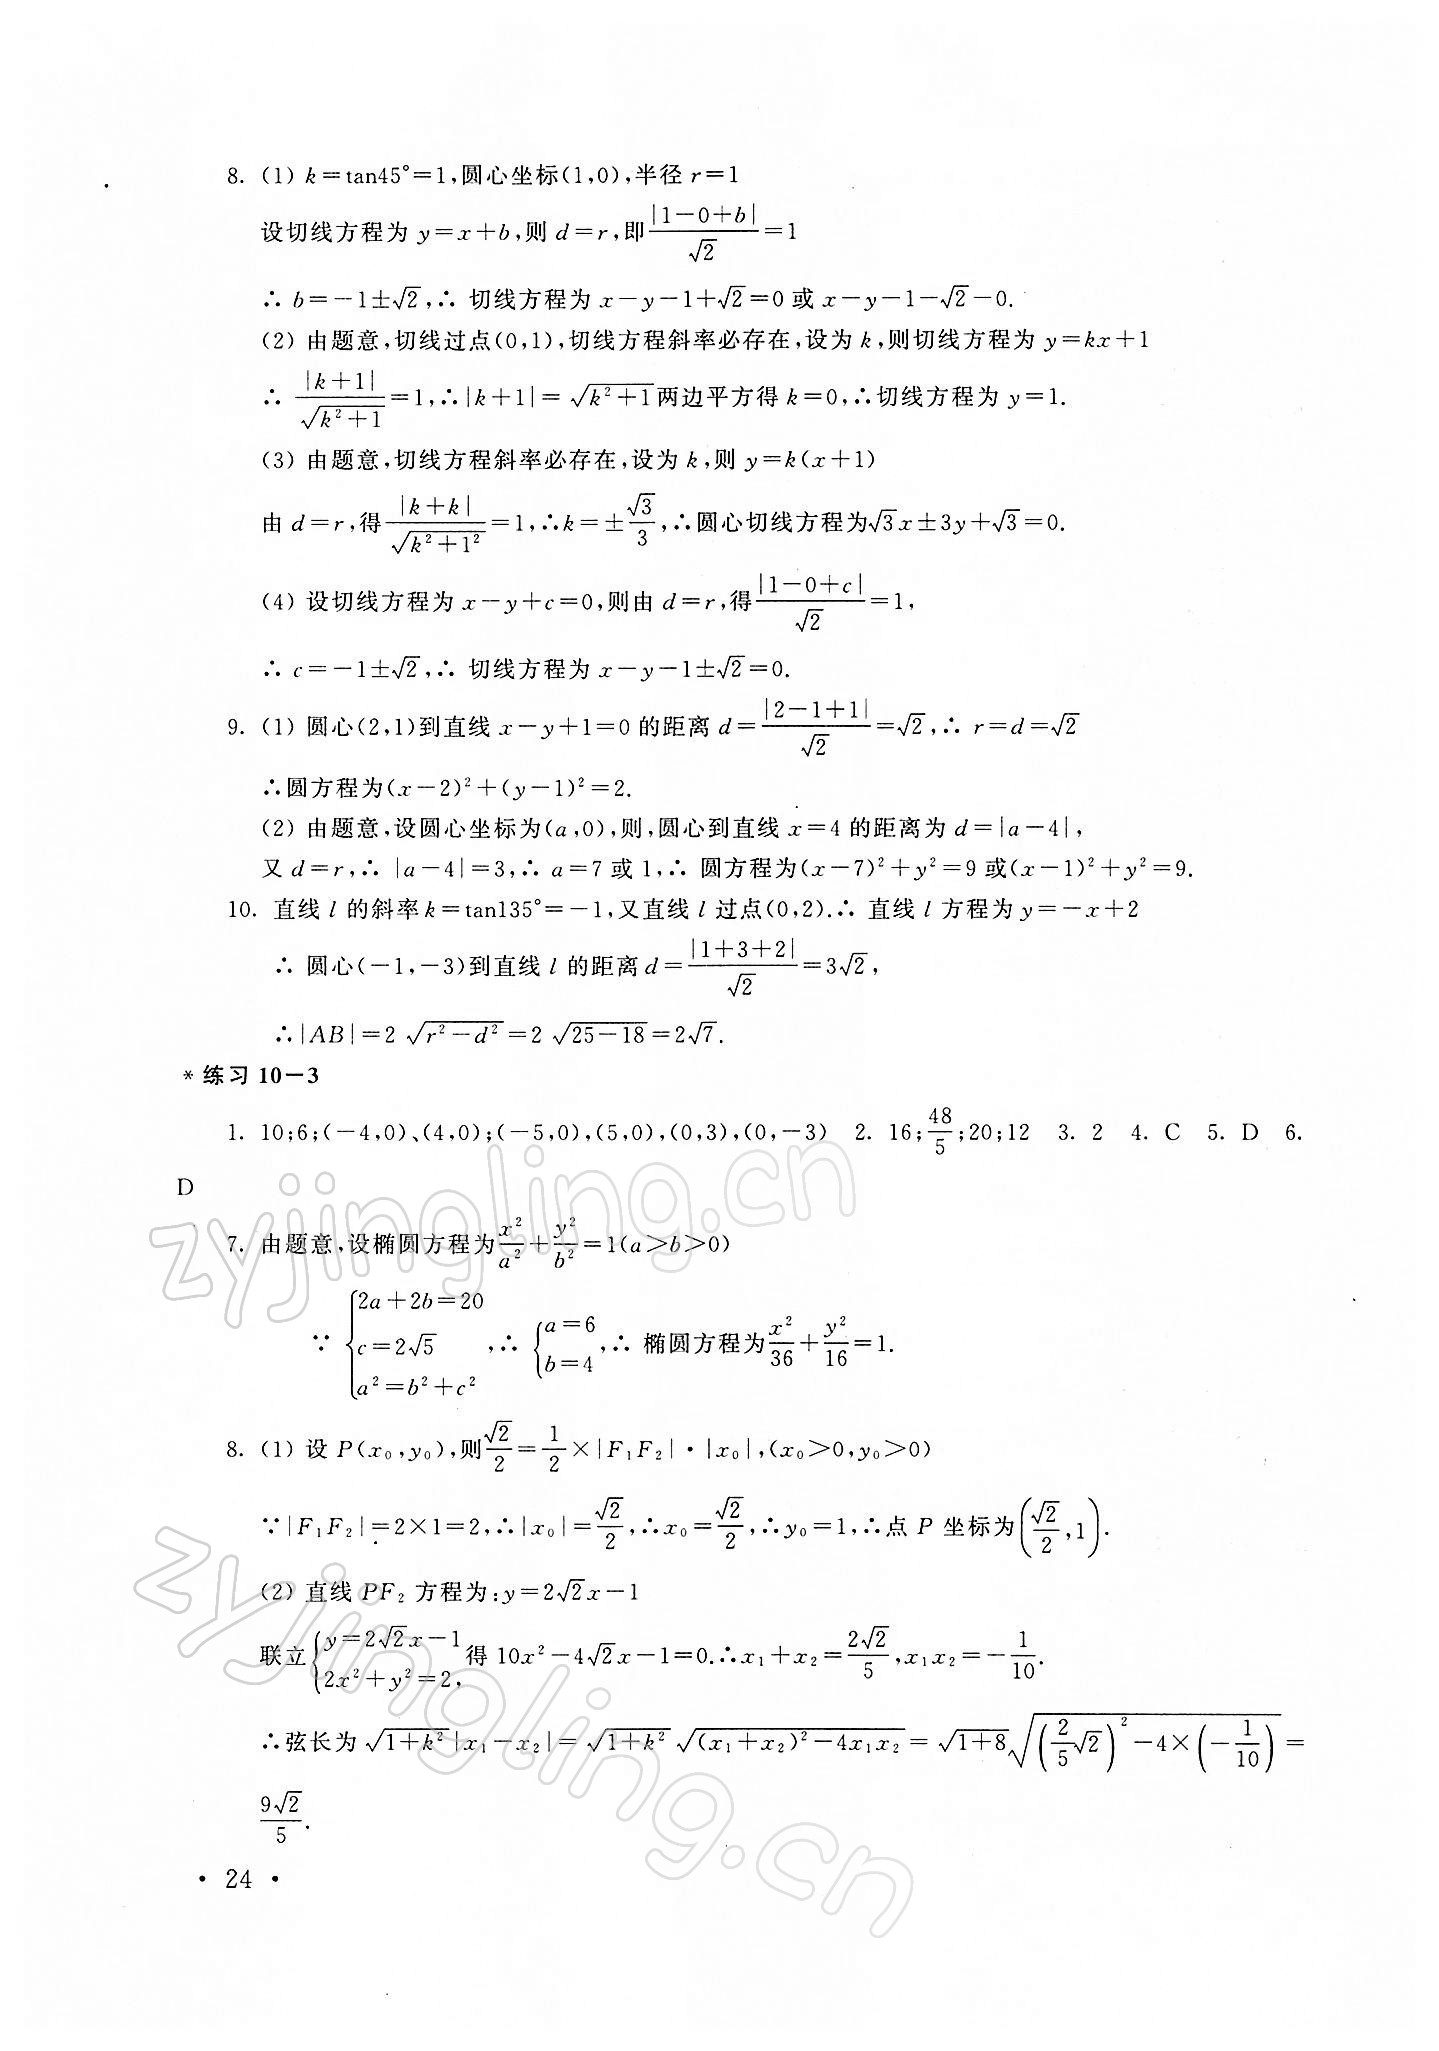 8. (1) k=tan45°=1,圆心坐标(1,0),半径 r=1
设切线方程为 y=x+b,则 d=r,即|1-0+b|/√2=1
∴ b=-1±√2,∴ 切线方程为 x-y-1+√2=0 或 x-y-1-√2-0.
(2) 由题意,切线过点(0,1),切线方程斜率必存在,设为 k,则切线方程为 y=kx+1
∴ |k+1|/√(k²+1)=1,∴|k+1|=√(k²+1)两边平方得 k=0,∴切线方程为 y=1.
(3) 由题意,切线方程斜率必存在,设为 k,则 y=k(x+1)
由 d=r,得|k+k|/√(k²+1²)=1,∴k=±√3/3,∴圆心切线方程为√3x±3y+√3=0.
(4) 设切线方程为 x-y+c=0,则由 d=r,得|1-0+c|/√2=1,
∴ c=-1±√2,∴ 切线方程为 x-y-1±√2=0.
9. (1) 圆心(2,1)到直线 x-y+1=0 的距离 d=|2-1+1|/√2=√2,∴ r=d=√2
∴圆方程为(x-2)²+(y-1)²=2.
(2) 由题意,设圆心坐标为(a,0),则,圆心到直线 x=4 的距离为 d=|a-4|,
又 d=r,∴ |a-4|=3,∴ a=7 或 1,∴ 圆方程为(x-7)²+y²=9 或(x-1)²+y²=9.
10. 直线 l 的斜率 k=tan135°=-1,又直线 l 过点(0,2).∴ 直线 l 方程为 y=-x+2
∴ 圆心(-1,-3)到直线 l 的距离 d=|1+3+2|/√2=3√2,
∴|AB|=2 √(r²-d²)=2 √(25-18)=2√7.
* 练习 10-3
1. 10;6;(-4,0)、(4,0);(-5,0),(5,0),(0,3),(0,-3) 2. 16;48/5;20;12 3. 2 4. C 5. D 6.
D
7. 由题意,设椭圆方程为x²/a²+y²/b²=1(a>b>0)
∵ {2a+2b=20
c=2√5
a²=b²+c²
,∴ {a=6
b=4
,∴ 椭圆方程为x²/36+y²/16=1.
8. (1) 设 P(x₀,y₀),则√2/2=1/2×|F₁F₂|·|x₀|,(x₀>0,y₀>0)
∵|F₁F₂|=2×1=2,∴|x₀|=√2/2,∴x₀=√2/2,∴y₀=1,∴点 P 坐标为(√2/2,1).
(2) 直线 PF₂ 方程为:y=2√2x-1
联立{y=2√2x-1
2x²+y²=2,
得 10x²-4√2x-1=0.∴x₁+x₂=2√2/5,x₁x₂=-1/10.
∴弦长为 √(1+k²)|x₁-x₂|=√(1+k²) √((x₁+x₂)²-4x₁x₂)=√(1+8)√((2/5√2)²-4×(-1/10))=
9√2/5.
• 24 •
zyjingling.cn
zyjingling.cn